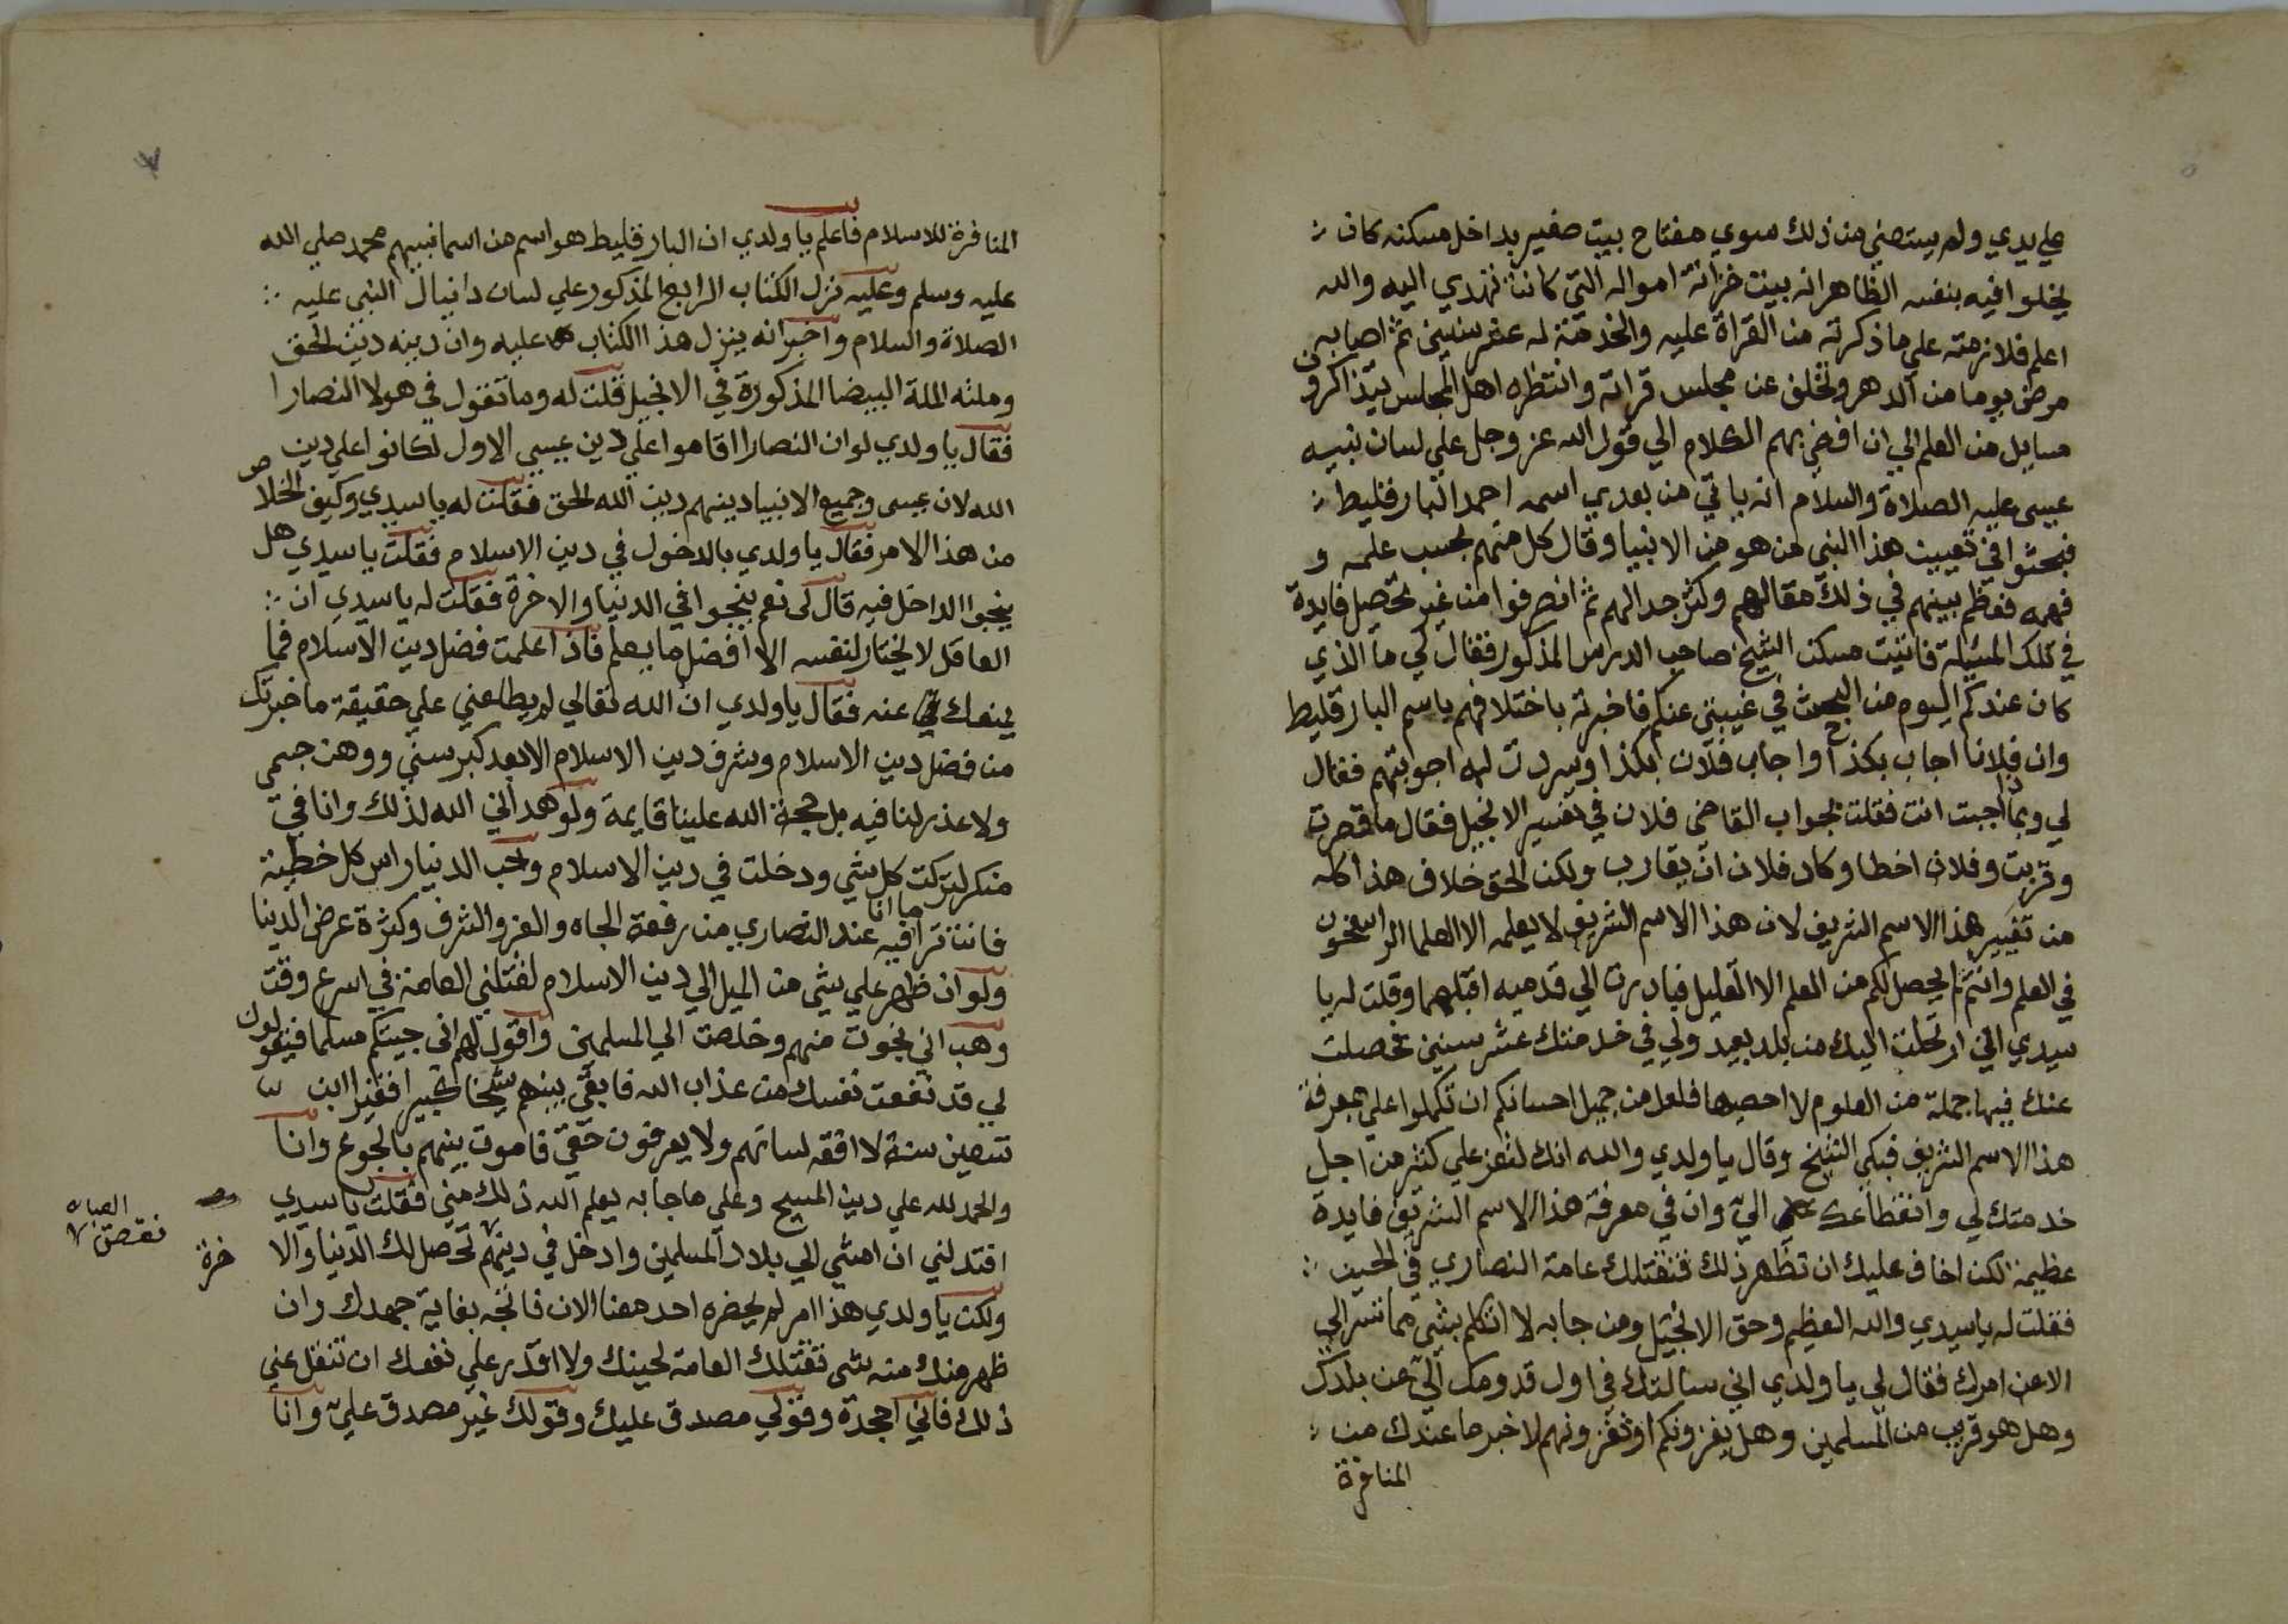 علي يدي ولم يستصني من ذلك سوي مفتاح بيت صغير بداخل مسكنه كان
يخلوا فيه بنفسه الظاهر انه بيت خزانة امواله التي كانت تهدي اليه والله
اعلم فلازمته علي ما ذكرته من القراة عليه والخدمة له عشر سنين ثم اصابه
مرض يوما من الدهر وتخلف عن مجلس قراته وانتظره اهل المجلس يتذاكرون
مسايل من العلم الي ان افضي بهم الكلام الي قول الله عز وجل علي لسان نبيه
عيسي عليه الصلاة والسلام انه ياتي من بعدي اسمه احمد البارقليط
فبحثوا في تعيين هذا النبي من هو من الانبيا وقال كل منهم بحسب علمه و
فهمه فعظم بينهم في ذلك مقالهم وكثر جدالهم ثم انصرفوا من غير تحصيل فايدة
في تلك المسئلة فاتيت مسكن الشيخ صاحب الدرس المذكور فقال لي ما الذي
كان عندكم اليوم من البحث في غيبتي عنكم فاخبرته باختلافهم باسم البارقليط
وان فلانا اجاب بكذا واجاب فلان بكذا وسردت له اجوبتهم فقال
لي وبماذا اجبت انت فقلت بجواب القاضي فلان في تفسير الانجيل فقال ما قصرت
وقربت وفلان اخطا وكاد فلان ان يقارب ولكن الحق خلاف هذا كله
من تفسير هذا الاسم الشريف لان هذا الاسم الشريف لا يعلمه الا العلما الراسخون
في العلم وانتم لم يحصل لكم من العلم الا القليل فبادرت الي قدميه اقبلهما وقلت له يا
سيدي اني ارتحلت اليك من بلد بعيد ولي في خدمتك عشر سنين تحصلت
عنك فيها جملة من العلوم لا احصيها فلعل من جميل احسانكم ان تكملوا علي بمعرفة
هذا الاسم الشريف فبكي الشيخ وقال يا ولدي والله انك لتعز علي كثير من اجل
خدمتك لي وانقطاعك الي وان في معرفة هذا الاسم الشريف فايدة
عظيمة لكن اخاف عليك ان تظهر ذلك فتقتلك عامة النصاري في الحين
فقلت له يا سيدي والله العظيم وحق الانجيل ومن جا به لا اتكلم بشي مما تسر الي
الا عن امرك فقال لي يا ولدي اني سالتك في اول قدومك الي عن بلدك
وهل هو قريب من المسلمين وهل يغزونكم او تغزونهم لاخبر ما عندك من
المنافرة
المنافرة للاسلام فاعلم يا ولدي ان البارقليط هو اسم من اسما نبيهم محمد صلي الله
عليه وسلم وعليه نزل الكتاب الرابع المذكور علي لسان دانيال النبي عليه
الصلاة والسلام واخبر انه ينزل هذا الكتاب عليه وان دينه دين الحق
وملته الملة البيضا المذكورة في الانجيل قلت له وما تقول في هولا النصارا
فقال يا ولدي لو ان النصارا اقاموا علي دين عيسي الاول لكانوا علي دين
الله لان عيسي وجميع الانبيا دينهم دين الله الحق فقلت له يا سيدي وكيف الخلاص
من هذا الامر فقال يا ولدي بالدخول في دين الاسلام فقلت يا سيدي هل
ينجوا الداخل فيه قال لي نعم ينجوا في الدنيا والاخرة فقلت له يا سيدي ان
العاقل لا يختار لنفسه الا افضل ما يعلم فاذا علمت فضل دين الاسلام فما
يمنعك عنه فقال يا ولدي ان الله تعالي لم يطلعني علي حقيقة ما خبرتك
من فضل دين الاسلام وشرف دين الاسلام الا بعد كبر سني ووهن جسمي
ولا عذر لنا فيه بل حجة الله علينا قايمة ولو هداني الله لذلك وانا في
سنك لتركت كل شي ودخلت في دين الاسلام وحب الدنيا راس كل خطيئة
فانت ترا ما انا فيه عند النصاري من رفعة الجاه والعز والشرف وكثرة عرض الدنيا
ولو ان ظهر علي شي من الميل الي دين الاسلام لقتلني العامة في اسرع وقت
وهب اني نجوت منهم وخلصت الي المسلمين واقول لهم اني جيتكم مسلما فيقولون
لي قد نفعت نفسك من عذاب الله فابقي بينهم شيخا كبيرا فقيرا ابن
تسعين سنة لا افقه لسانهم ولا يعرفون حقي فاموت بينهم بالجوع وانا
والحمد لله علي دين المسيح وعلي ما جا به يعلم الله ذلك مني فقلت يا سيدي
افتدلني ان امشي الي بلاد المسلمين وادخل في دينهم تحصل لك الدنيا والا
خرة
ولكن يا ولدي هذا امر لم يحضره احد معنا الان فانجه بغاية جهدك وان
ظهر منك منه شي تقتلك العامة لحينك ولا اقدر علي نفعك ان تنقل عني
ذلك فاني اجحده وقولي مصدق عليك وقولك غير مصدق علي وانا